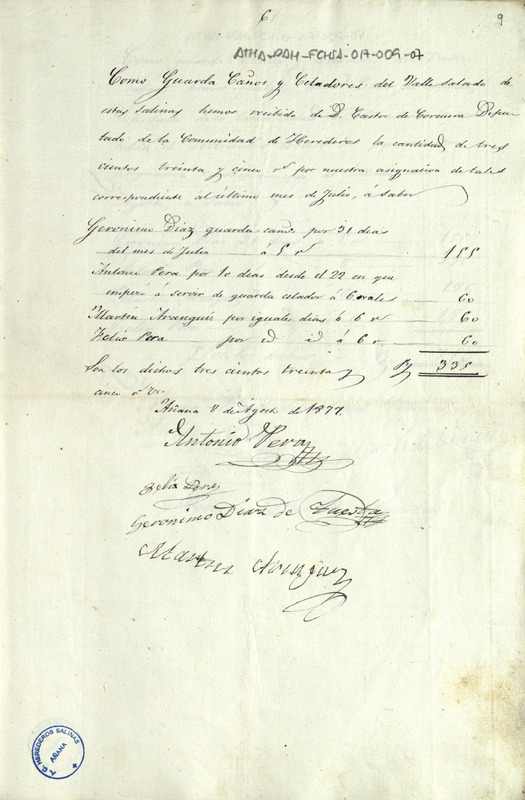 6
9
ATHA-PAH-FCHSA-017-009-07
Como Guarda Caños y Celadores del Valle salado de
estas salinas hemos recibido de D. Castor de Corcuera Dipu-
tado de la Comunidad de Herederos la cantidad de tres
cientos treinta y cinco r.s por nuestra asignativa de tales
correspondiente al último mes de Julio, á saber
Geronimo Diaz guarda-caños por 31 dias
del mes de Julio á 5 r.s 155
Antonio Pera por 10 dias desde el 22 en que
empezó á servir de guarda celador á 6 reales 60
Martin Aranguiz por iguales dias á 6 r 60
Felix Pera por id id á 6 r 60
Son los dichos tres cientos treinta y 335
cinco r.s
Añana 2 de Agosto de 1877.
Antonio Pera
Felix Pera
Geronimo Diaz de Tuesta
Martin Aranguiz
A. C. HEREDEROS SALINAS
AÑANA